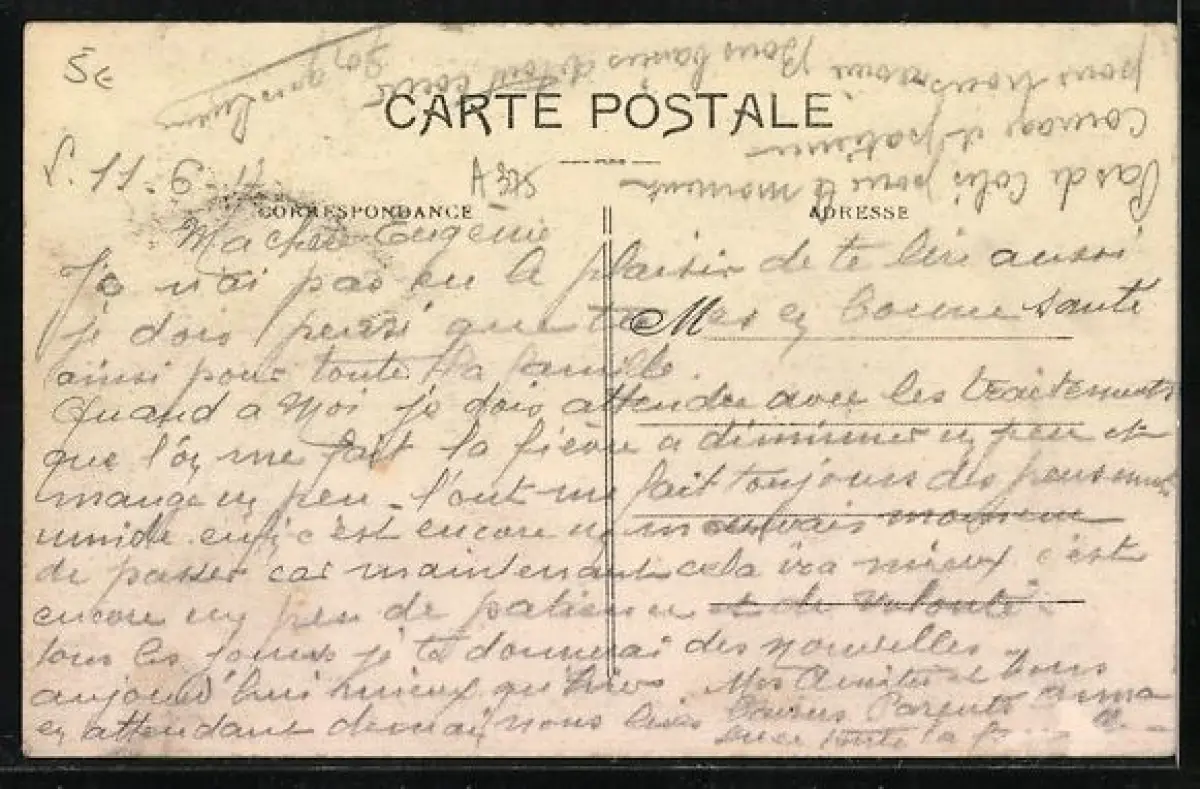 5€
CARTE POSTALE
11-6-1
A 375
CORRESPONDANCE
ADRESSE
Ma chère Eugénie
Je n'ai pas eu le plaisir de te lire aussi
je dois pensé que tu es en bonne santé
M
ainsi pour toute la famille.
Quand a moi je dois attendre avec les traitements
que l'on me fait la fièvre a diminuer un peu et
mange un peu. l'on me fait toujours des pensements
umide enfin c'est encore un mauvais
de passer car maintenant cela ira mieux c'est
encore un peu de patience et de volonté
tous les jours je te donnerai des nouvelles
aujourd'hui mieux qu'hier. Mes Amities et Bons
en attendant demain nous lire baisers Parents
toute la
Pas de Colis pour le moment
Courage et patience
pour nous Bons baisers de tout coeur